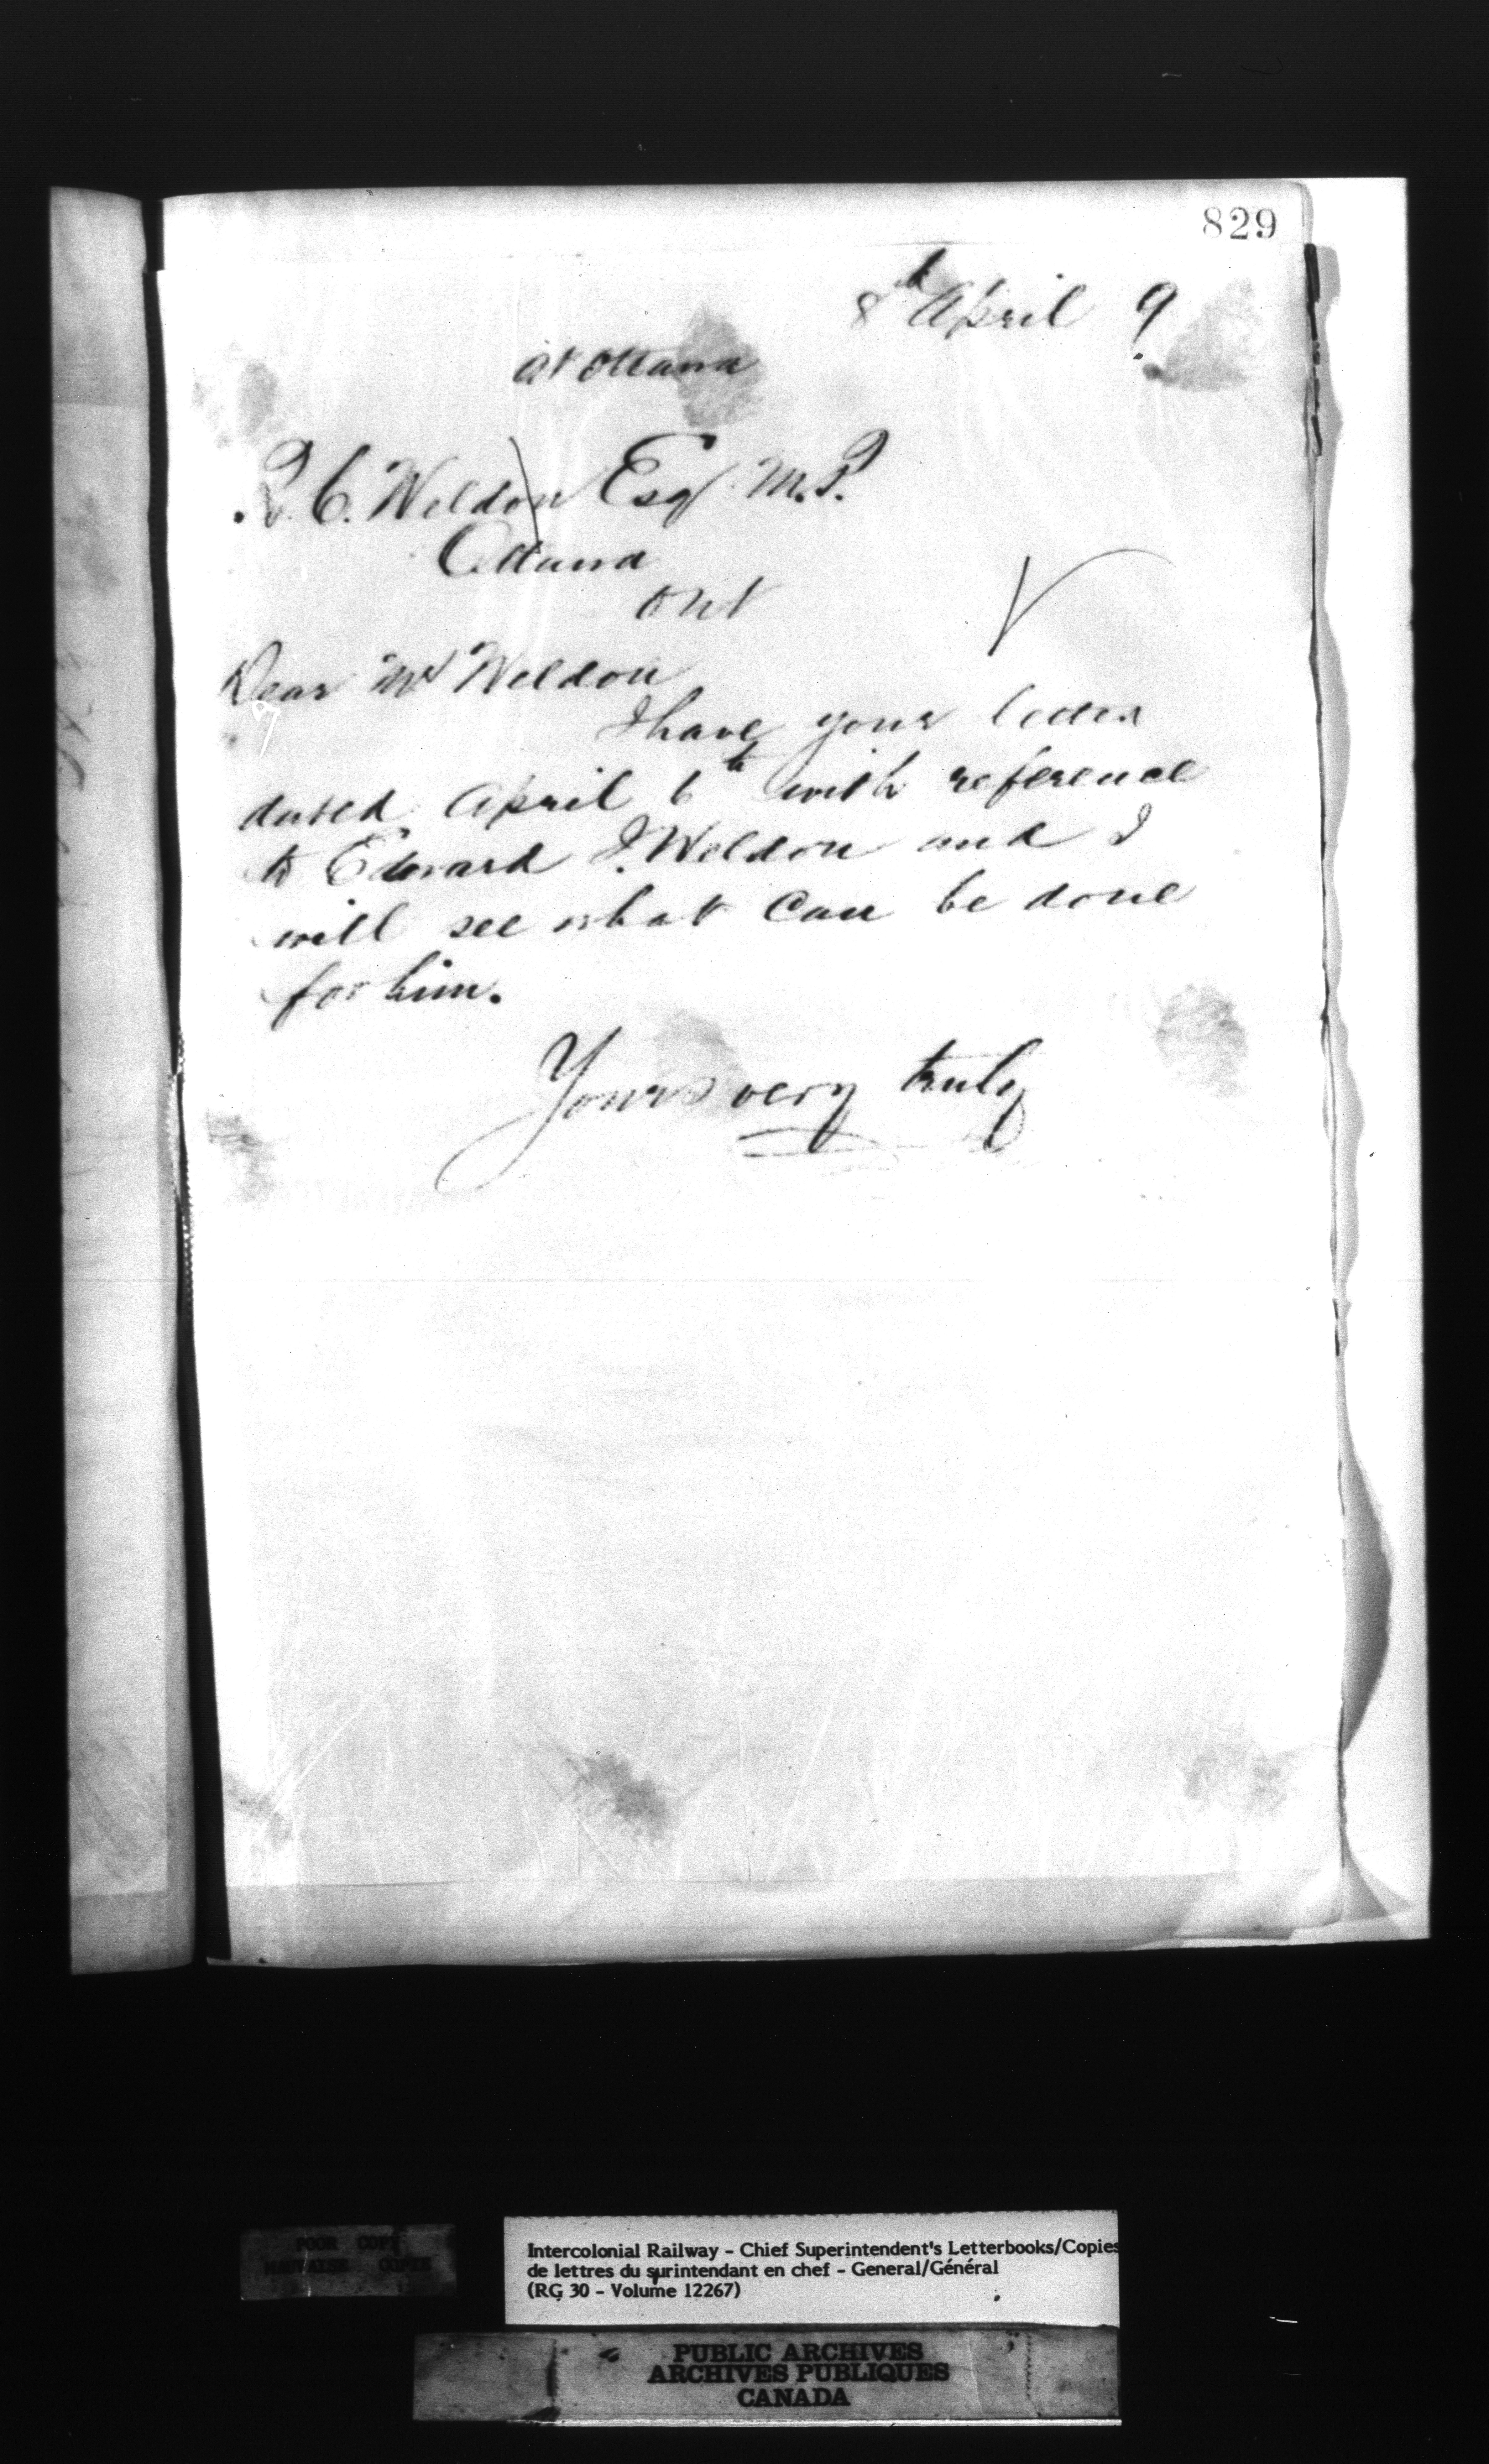 829
8th April 9
at Ottawa
R. C. Weldon Esq M.P.
Ottawa
Ont
Dear Mr Weldon
I have your letter
dated April 6th with reference
to Edward J. Weldon and I
will see what can be done
for him.
Yours very truly
POOR COPY
MAUVAISE COPIE
Intercolonial Railway - Chief Superintendent's Letterbooks/Copies
de lettres du surintendant en chef - General/Général
(RG 30 - Volume 12267)
PUBLIC ARCHIVES
ARCHIVES PUBLIQUES
CANADA